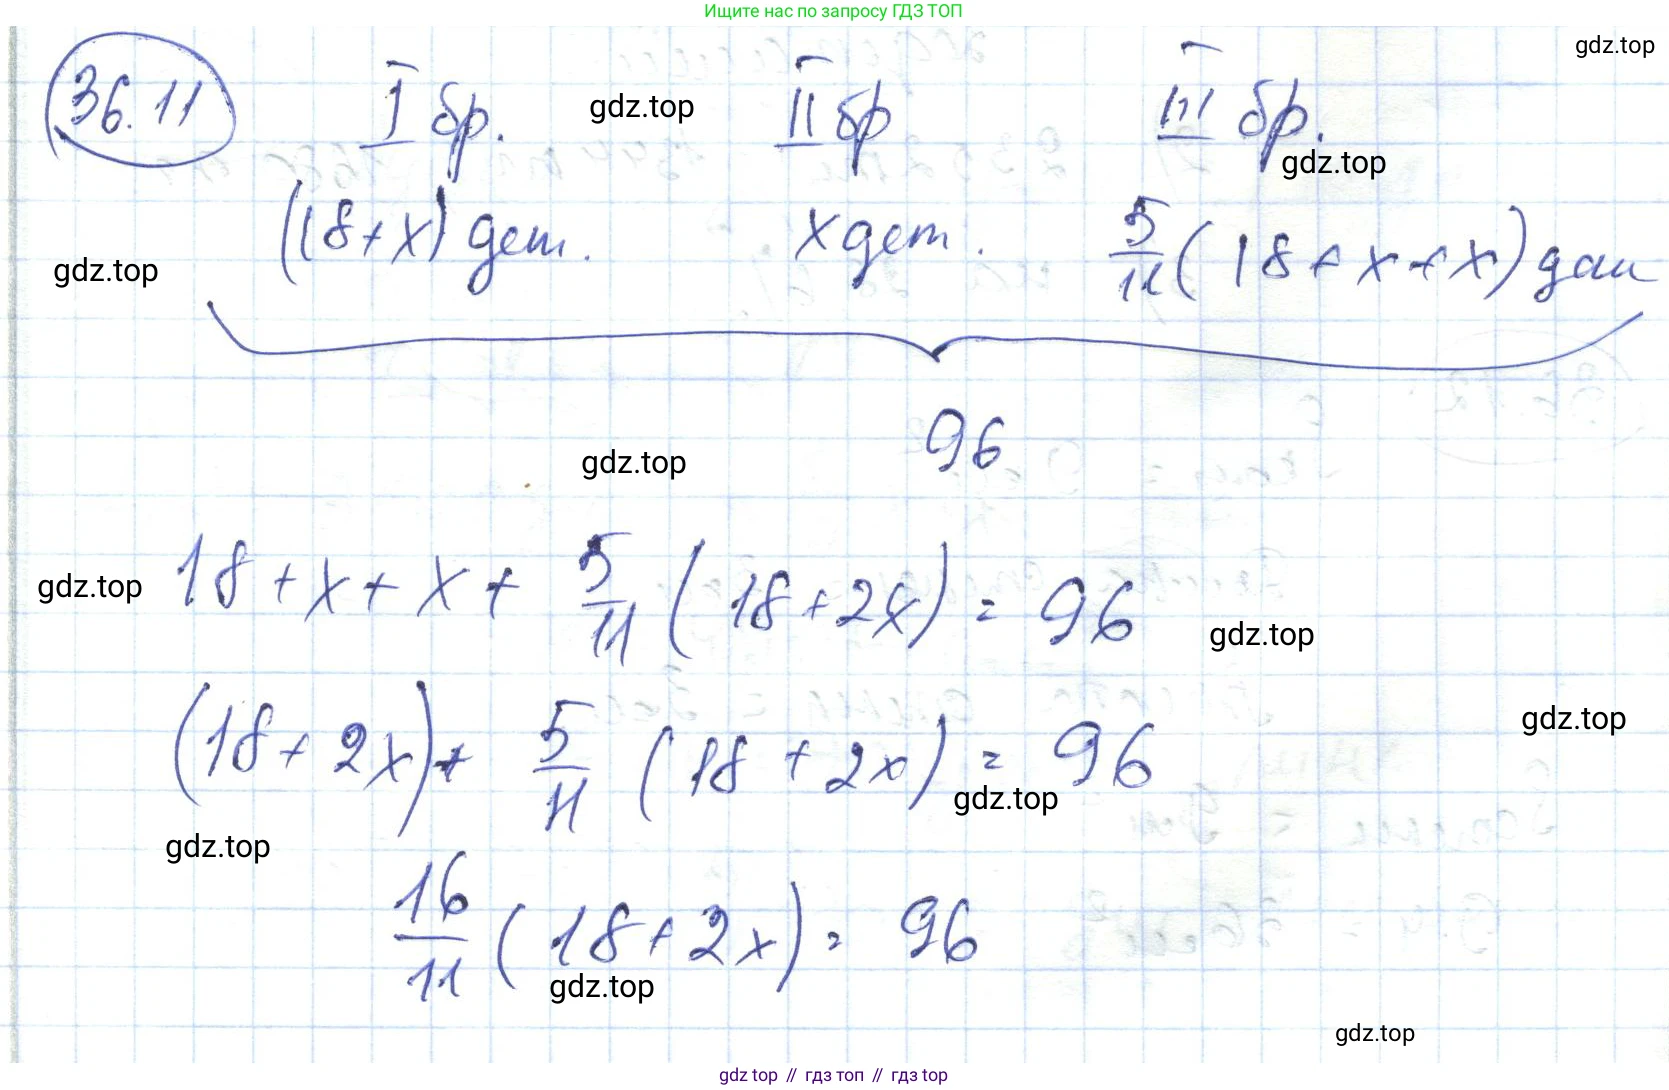 Ищите нас по запросу ГДЗ ТОП
gdz.top
36.11 I бр. II бр III бр.
gdz.top
gdz.top
(18+x) дет. x дет. 5/11 (18+x+x) дет
gdz.top
96
gdz.top
18+x+x+ 5/11 (18+2x) = 96
gdz.top
gdz.top
(18+2x)+ 5/11 (18+2x) = 96
gdz.top
gdz.top
gdz.top
16/11 (18+2x) = 96
gdz.top
gdz.top
gdz top // гдз топ // гдз top